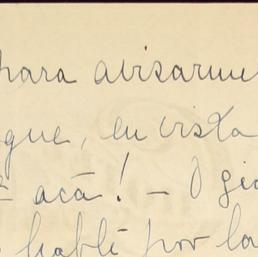 para avisarme
que, en vista
acá! – O
hablé por la